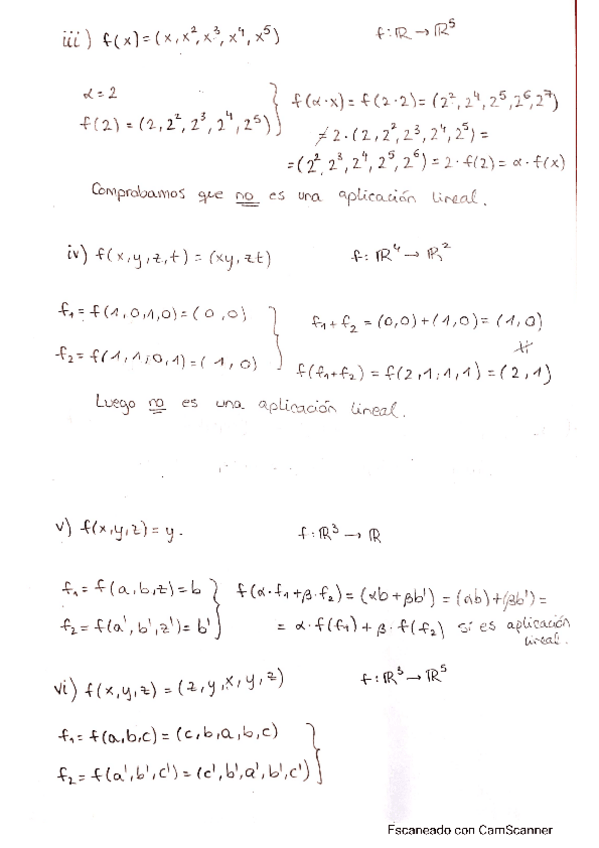 iii) f(x)=(x,x²,x³,x⁴,x⁵) f:ℝ→ℝ⁵
α=2
f(α·x)=f(2·2)=(2²,2⁴,2⁵,2⁶,2⁷)
f(2)=(2,2²,2³,2⁴,2⁵)
≠2·(2,2²,2³,2⁴,2⁵)=
=(2²,2³,2⁴,2⁵,2⁶)=2·f(2)=α·f(x)
Comprobamos que no es una aplicación lineal.
iv) f(x,y,z,t)=(xy,zt) f:ℝ⁴→ℝ²
f₁=f(1,0,1,0)=(0,0) f₁+f₂=(0,0)+(1,0)=(1,0)
≠
f₂=f(1,1,0,1)=(1,0) f(f₁+f₂)=f(2,1,1,1)=(2,1)
Luego no es una aplicación lineal.
v) f(x,y,z)=y. f:ℝ³→ℝ
f₁=f(a,b,z)=b f(α·f₁+β·f₂)=(αb+βb')=(αb)+(βb')=
f₂=f(a',b',z')=b' =α·f(f₁)+β·f(f₂) sí es aplicación
lineal.
vi) f(x,y,z)=(z,y,x,y,z) f:ℝ³→ℝ⁵
f₁=f(a,b,c)=(c,b,a,b,c)
f₂=f(a',b',c')=(c',b',a',b',c')
Escaneado con CamScanner